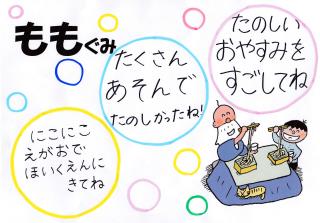 ももぐみ
たくさん
あそんで
たのしかったね!
たのしい
おやすみを
すごしてね
にこにこ
えがおで
ほいくえんに
きてね